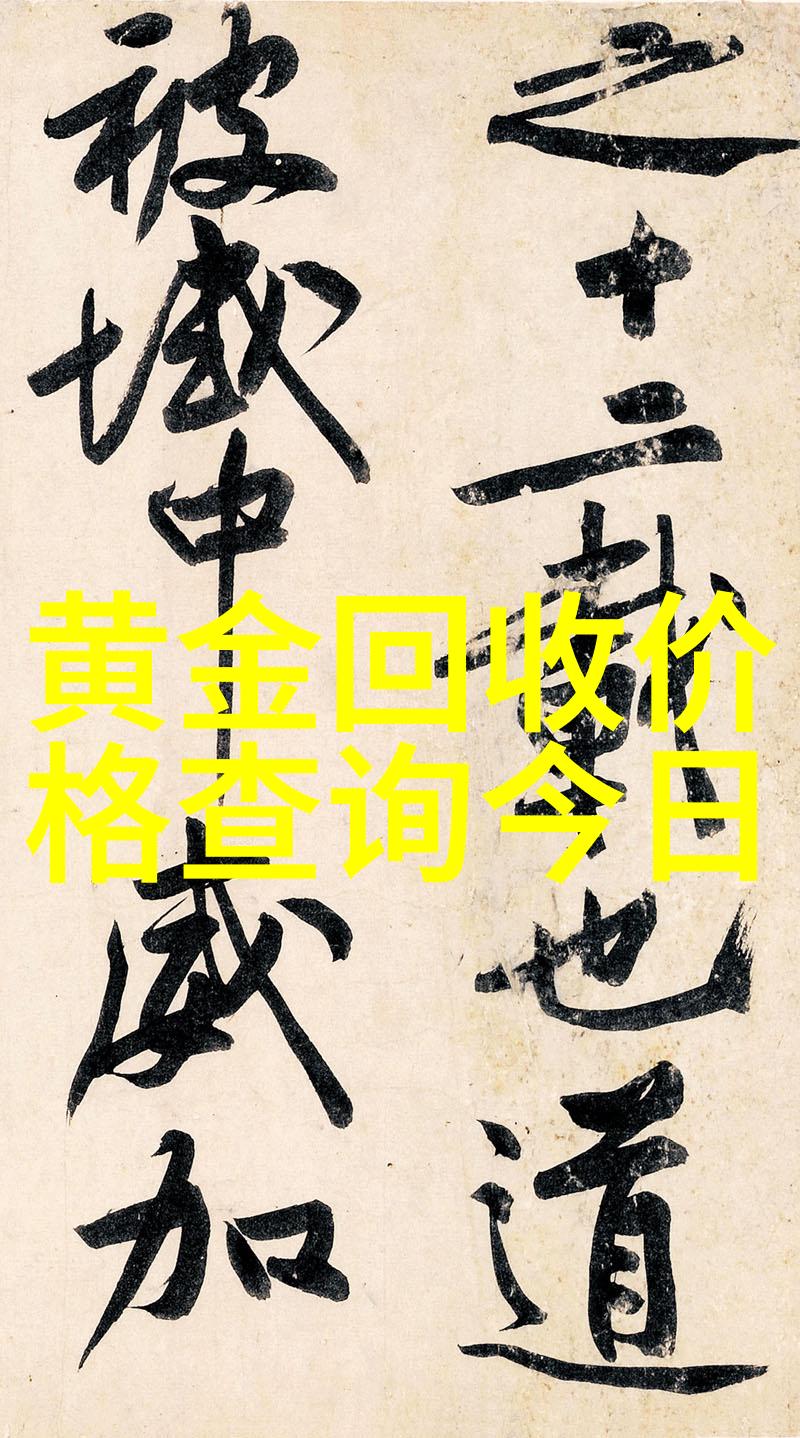 之十二載也道
被域中威加
黄金回收价
格查询今日